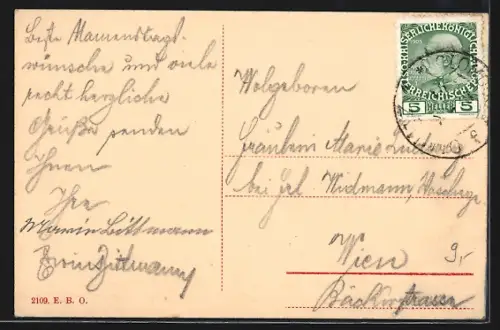 Beste Namenstags-
wünsche und viele
recht herzliche
Grüße senden
Ihnen
Ihre
Marie Littmann
Erwin Zittmann
2109. E. B. O.
Wolgeboren
Fräulein Marie Ludwig
bei Frl Widmann,
Wien 9,-
Bäckerstrasse
KAISERLICHE KÖNIGLICHE
ÖSTERREICHISCHE POST
5 HELLER 5